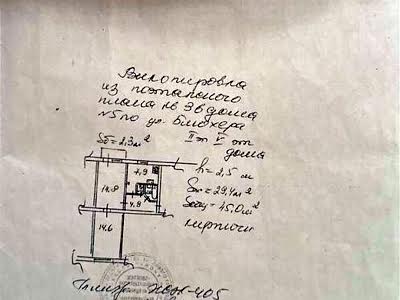 Выкопировка
из поэтажного
плана кв 36 дома
№5 по ул. Блюхера
IIэт V эт
дома
Sб = 2,3 м²
h = 2,5 м
Sж = 29,4 м²
Sобщ = 45,0 м²
кирпичн
7,9
14,8
4,8
14,6
405